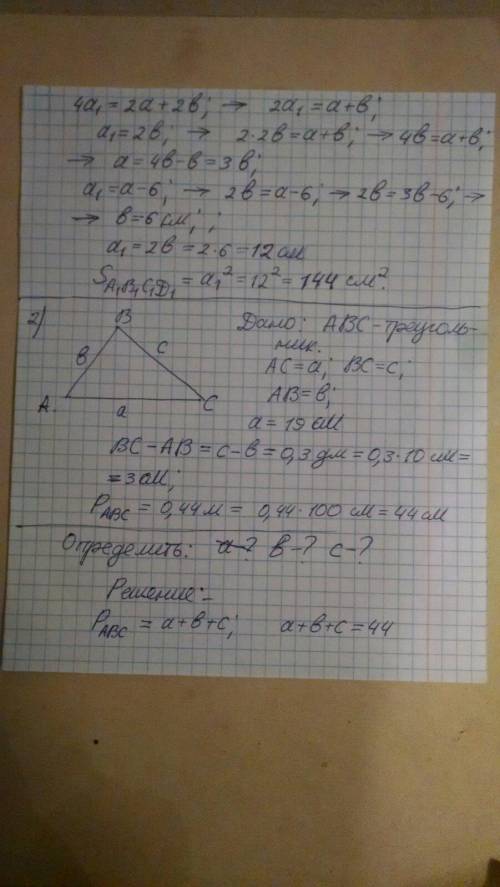 4a₁ = 2a + 2в; → 2a₁ = a + в;
a₁ = 2в; → 2·2в = a + в; → 4в = a + в;
→ a = 4в - в = 3в;
a₁ = a - 6; → 2в = a - 6; → 2в = 3в - 6; →
→ в = 6 см; ;
a₁ = 2в = 2·6 = 12 см
S_A₁B₁C₁D₁ = a₁² = 12² = 144 см².
2)
B
в
c
A.
a
C
Дано: ABC - треуголь-
ник.
AC = a; BC = c;
AB = в;
a = 19 см
BC - AB = c - в = 0,3 дм = 0,3·10 см =
= 3 см;
P_ABC = 0,44 м = 0,44·100 см = 44 см
Определить: a-? в-? c-?
Решение:-
P_ABC = a + в + c; a + в + c = 44